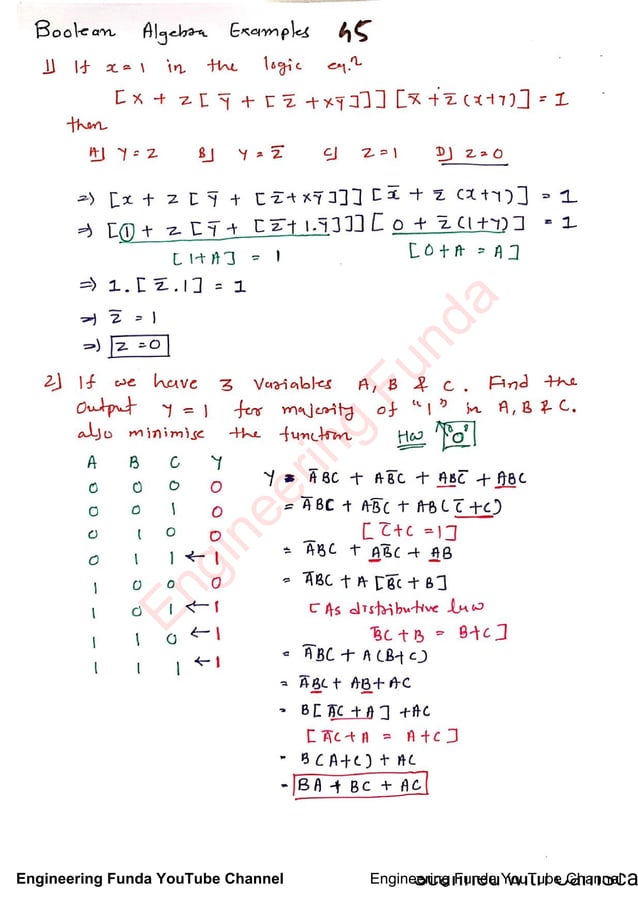 Boolean Algebra Examples 45
1) If x = 1 in the logic eq.n
[x + z[ȳ + [z̄ + xȳ]]][x̄ + z̄(x+y)] = 1
then
A) y = z B) y = z̄ C) z = 1 D) z = 0
⇒ [x + z[ȳ + [z̄ + xȳ]]][x̄ + z̄(x+y)] = 1
⇒ [1 + z[ȳ + [z̄ + 1.ȳ]]][0 + z̄(1+y)] = 1
[1+A] = 1 [0+A = A]
⇒ 1.[z̄.1] = 1
⇒ z̄ = 1
⇒ z = 0
2) If we have 3 variables A, B & C. Find the
output y = 1 for majority of "1" in A, B & C.
also minimise the function HW "0"
A B C Y
0 0 0 0
0 0 1 0
0 1 0 0
0 1 1 ← 1
1 0 0 0
1 0 1 ← 1
1 1 0 ← 1
1 1 1 ← 1
Y = ĀBC + AB̄C + ABC̄ + ABC
= ĀBC + AB̄C + AB(C̄+C)
[C̄+C = 1]
= ĀBC + AB̄C + AB
= ĀBC + A[B̄C + B]
[As distributive law
B̄C + B = B+C]
= ĀBC + A(B+C)
= ĀBC + AB + AC
= B[ĀC + A] + AC
[ĀC + A = A+C]
= B(A+C) + AC
= BA + BC + AC
Engineering Funda
Engineering Funda YouTube Channel Engineering Funda YouTube Channel